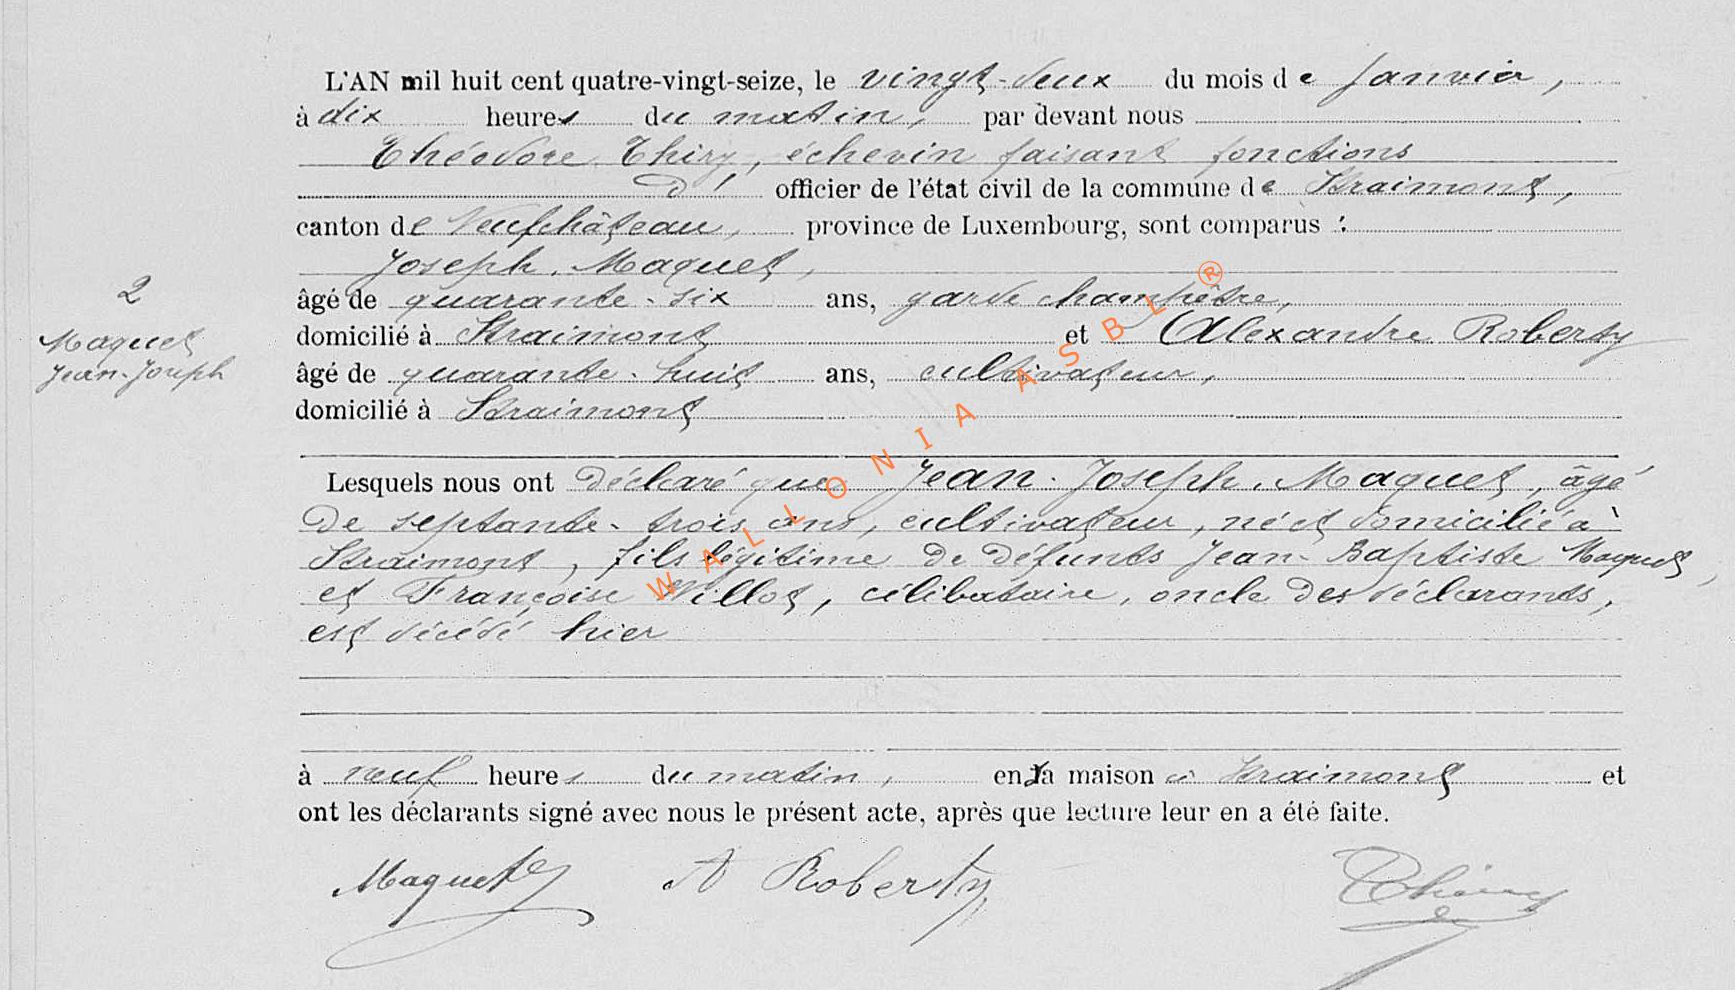 L'AN mil huit cent quatre-vingt-seize, le vingt-deux du mois de Janvier,
à dix heures du matin, par devant nous
Théodore Thiry, échevin faisant fonctions
d' officier de l'état civil de la commune de Straimont,
canton de Neufchâteau, province de Luxembourg, sont comparus :
Joseph Maquet,
âgé de quarante-six ans, garde champêtre,
domicilié à Straimont et Alexandre Roberty
âgé de quarante-huit ans, cultivateur,
domicilié à Straimont
2
Maquet
Jean-Joseph
Lesquels nous ont déclaré que Jean-Joseph Maquet, âgé
de septante-trois ans, cultivateur, né et domicilié à
Straimont, fils légitime de défunts Jean-Baptiste Maquet,
et Françoise Willot, célibataire, oncle des déclarants,
est décédé hier
à neuf heures du matin, en sa maison à Straimont et
ont les déclarants signé avec nous le présent acte, après que lecture leur en a été faite.
Maquet A Roberty Thiry
WALLONIA ASBL ®